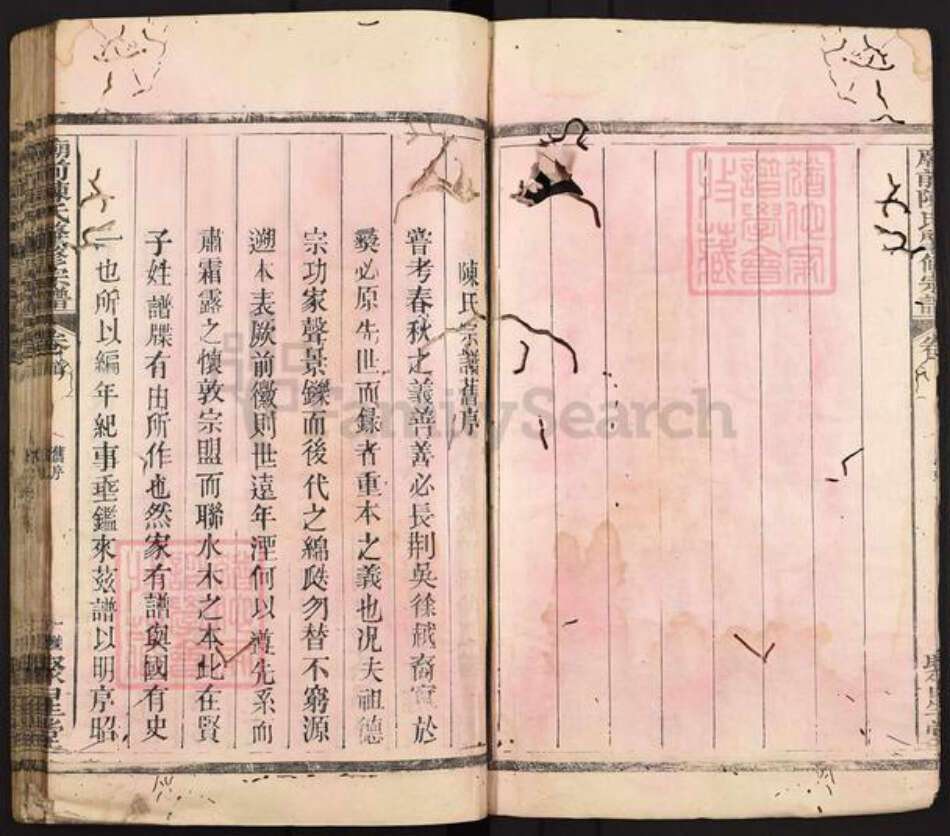 陳氏宗譜舊序
嘗考春秋之義善善必長荆吳徐越裔實於
爰必原先世而録者重本之義也况夫祖德
宗功家聲景鑠而後代之綿瓞勿替不窮源
遡本表厥前徽則世遠年湮何以遵先系而
肅霜露之懷敦宗盟而聯水木之本此在賢
子姓譜牒有由所作也然家有譜與國有史
一也所以編年紀事垂鑑來玆譜以明序昭
前陳氏修宗譜
卷首
舊序
聚星堂
譜學會
收藏
FamilySearch